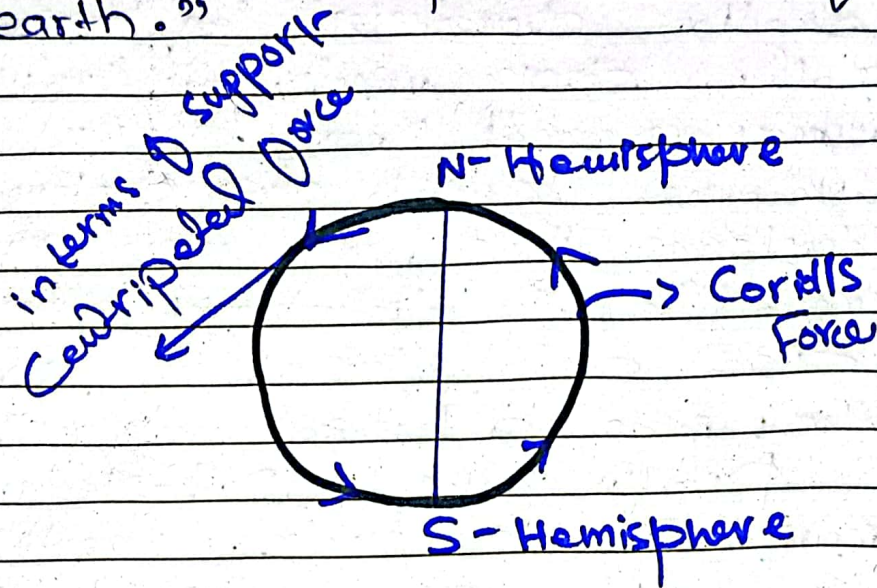 earth."
in terms of support
Centripetal force
N- Hemisphere
Coriolls
Force
S- Hemisphere